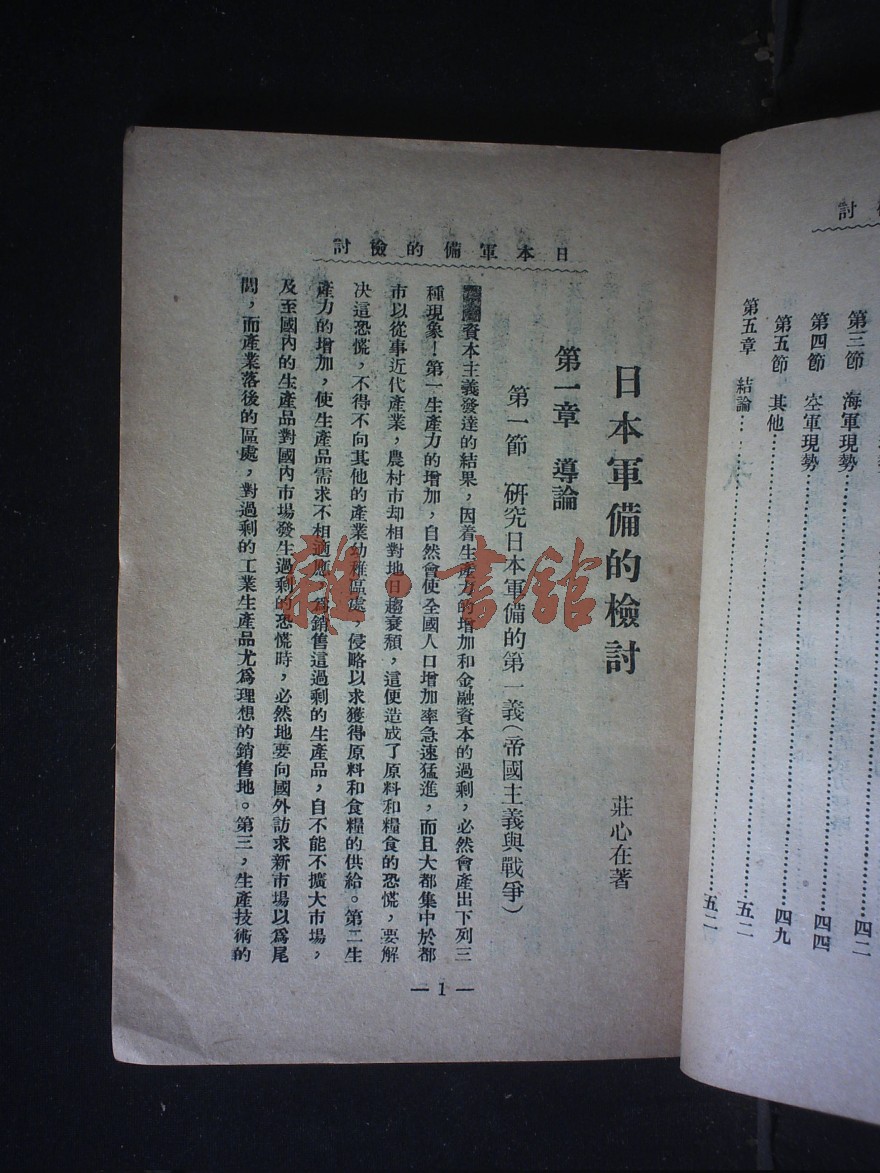 討
第三節 海軍現勢……四二
第四節 空軍現勢……四四
第五節 其他……四九
第五章 結論……五二
五二
日本軍備的檢討
日本軍備的檢討 莊心在著
第一章 導論
第一節 研究日本軍備的第一義(帝國主義與戰爭)
資本主義發達的結果,因着生產力的增加和金融資本的過剩,必然會產出下列三
種現象!第一生產力的增加,自然會使全國人口增加率急速猛進,而且大都集中於都
市以從事近代產業,農村市却相對地日趨衰頹,這便造成了原料和糧食的恐慌,要解
決這恐慌,不得不向其他的產業幼稚區處,侵略以求獲得原料和食糧的供給。第二生
產力的增加,使生產品需求不相適應,為銷售這過剩的生產品,自不能不擴大市場,
及至國內的生產品對國內市場發生過剩的恐慌時,必然地要向國外訪求新市場以爲尾
閭,而產業落後的區處,對過剩的工業生產品尤爲理想的銷售地。第三,生產技術的
—1—
雜·書館